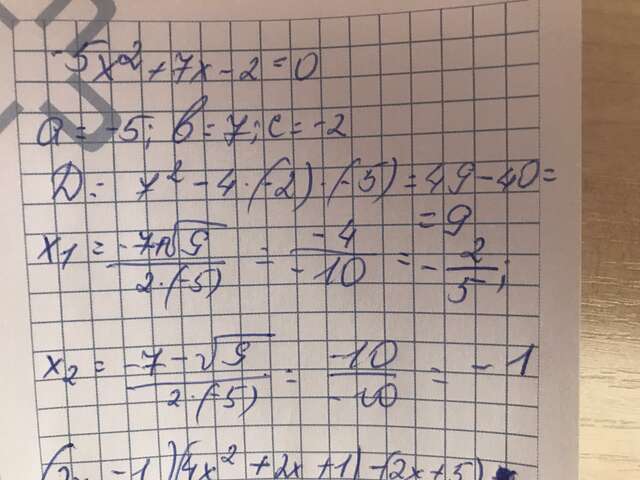 -5x² + 7x - 2 = 0
a = -5; b = 7; c = -2
D = 7² - 4·(-2)·(-5) = 49 - 40 =
= 9
x₁ = (-7+√9)/(2·(-5)) = (-4)/(-10) = -2/5;
x₂ = (-7-√9)/(2·(-5)) = (-10)/(-10) = -1
-1)(4x² + 2x + 1) - (2x + 5)